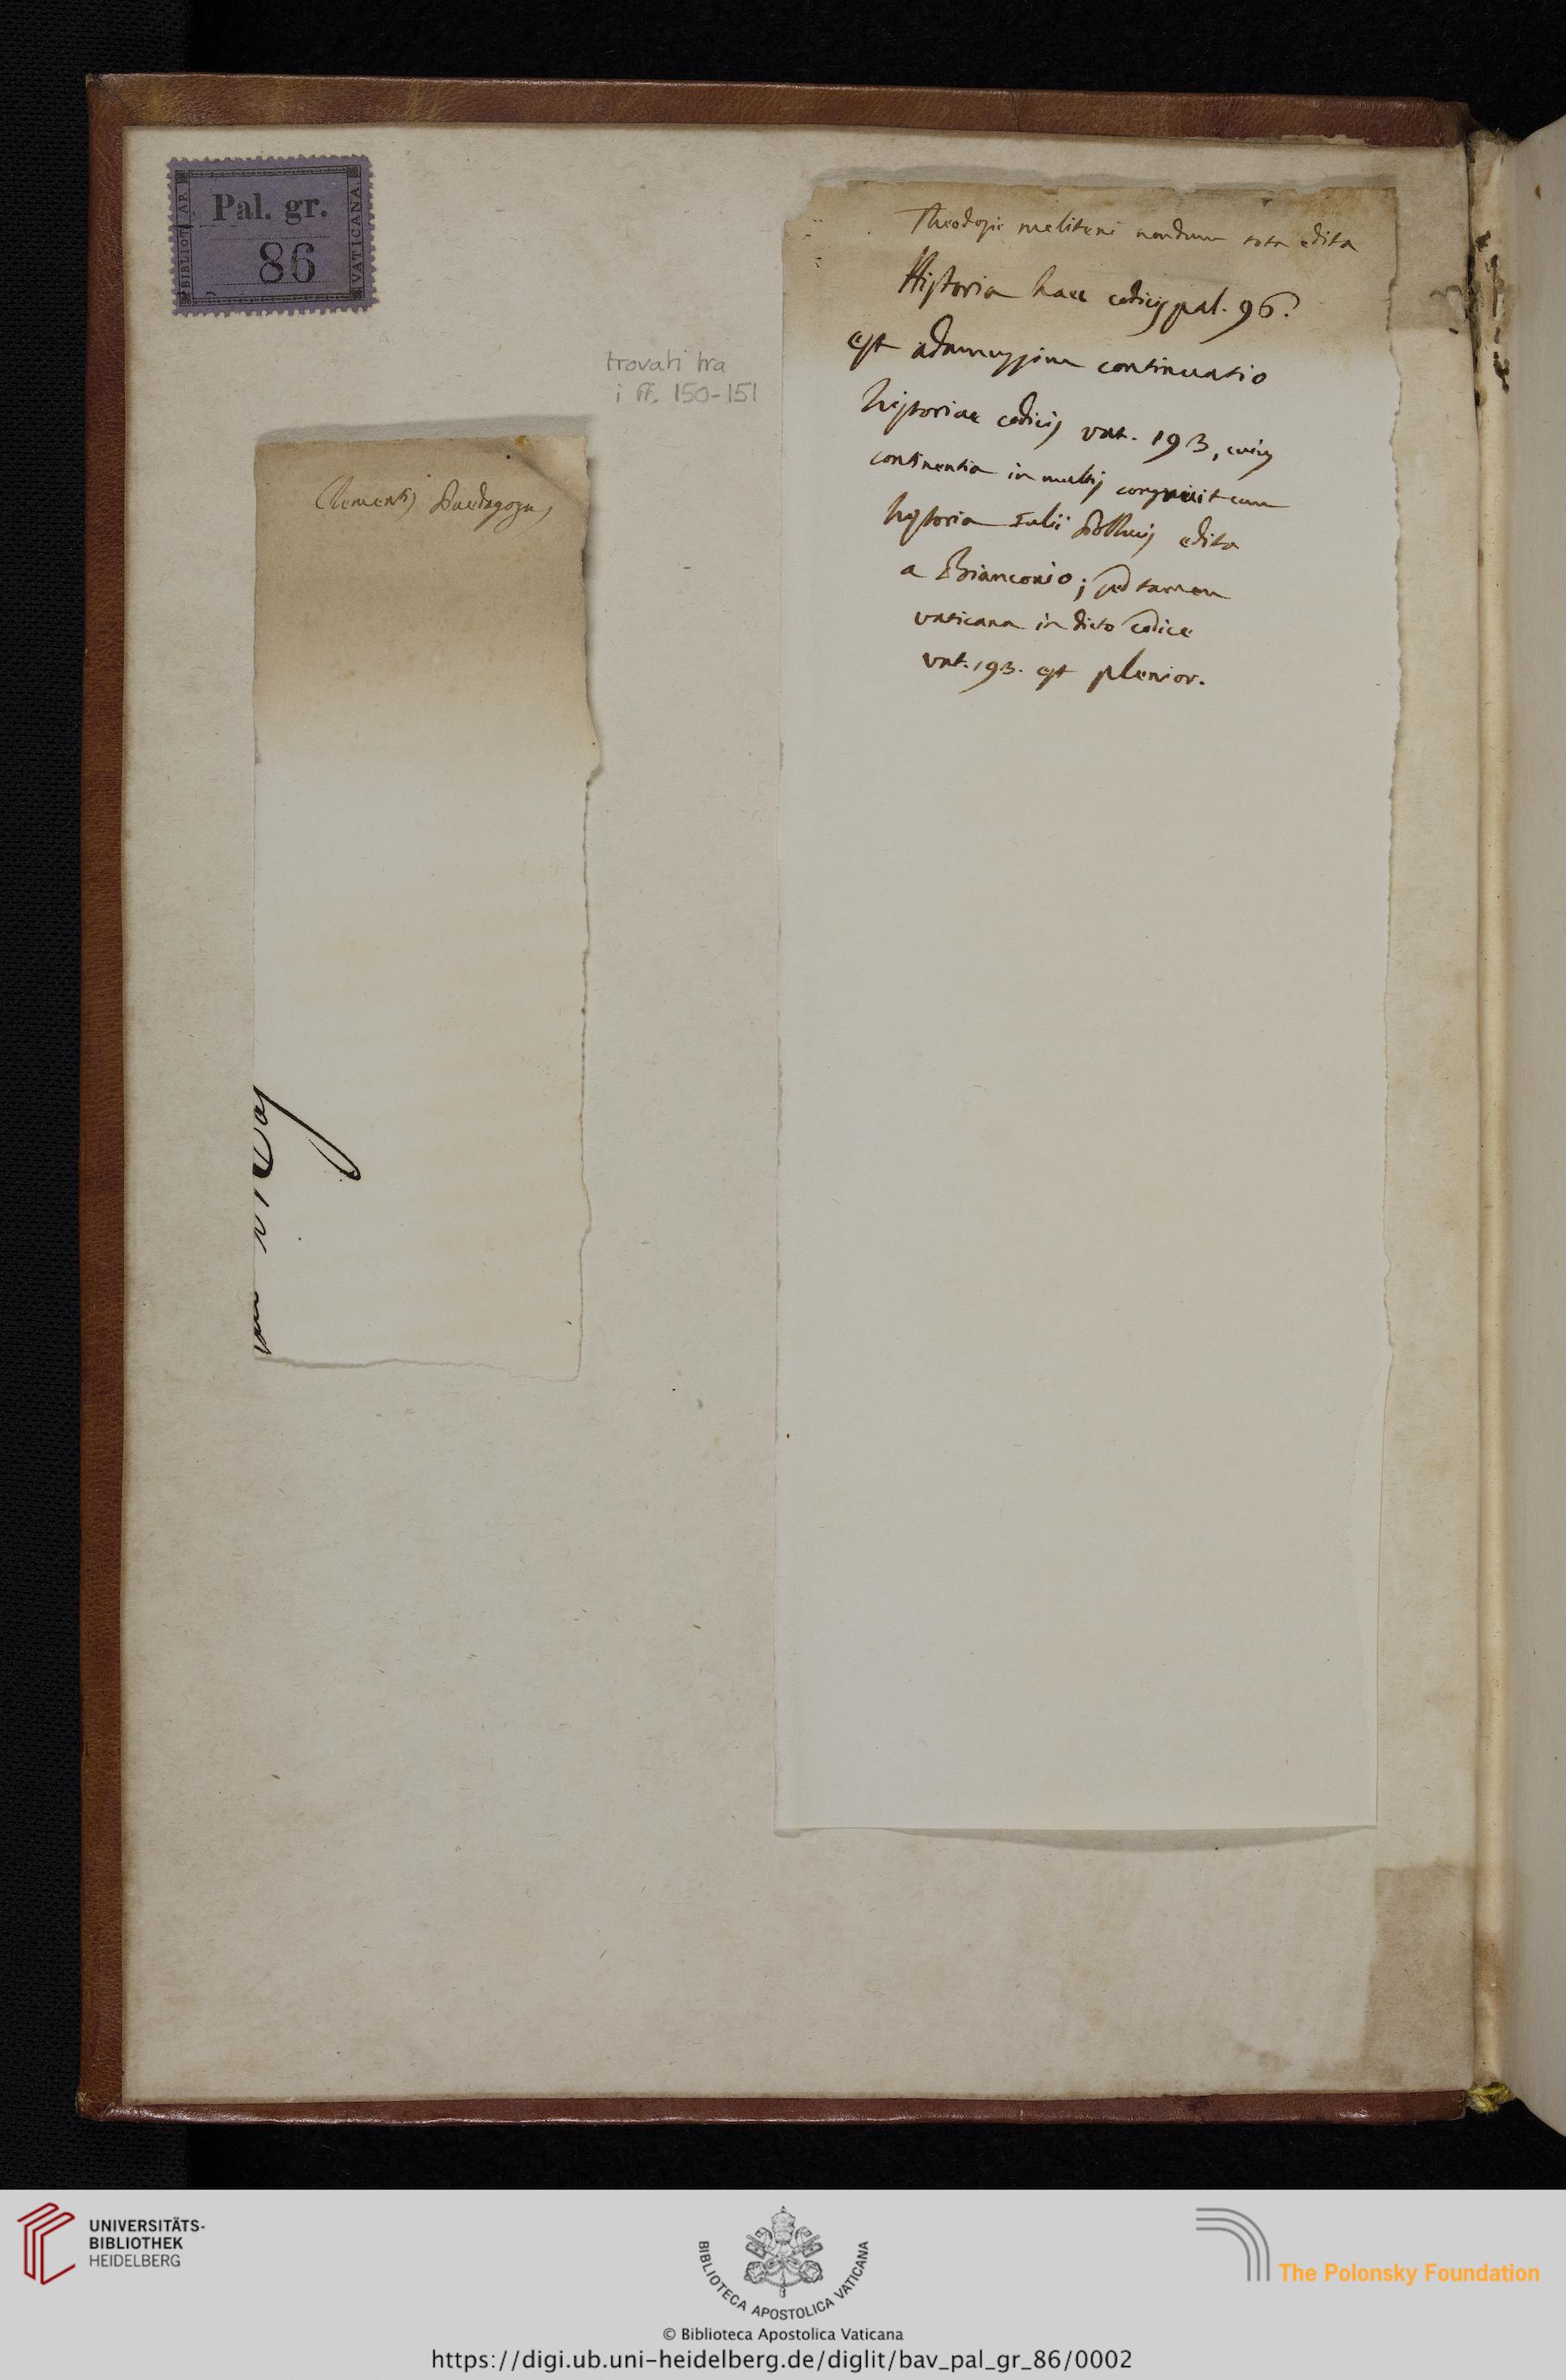 BIBLIOT. AP.
VATICANA.
Pal. gr.
86
trovati tra
i ff. 150-151
Clementis Paedagogus
Theodosii meliteni nondum tota edita
Historia haec codicis pal. 96.
est adamussim continuatio
historiae codicis vat. 193, cuius
continentia in multis congruit cum
historia Iulii Pollucis edita
a Bianconio; sed tamen
vaticana in dicto codice
vat. 193. est plenior.
UNIVERSITÄTS-
BIBLIOTHEK
HEIDELBERG
BIBLIOTECA APOSTOLICA VATICANA
The Polonsky Foundation
© Biblioteca Apostolica Vaticana
https://digi.ub.uni-heidelberg.de/diglit/bav_pal_gr_86/0002